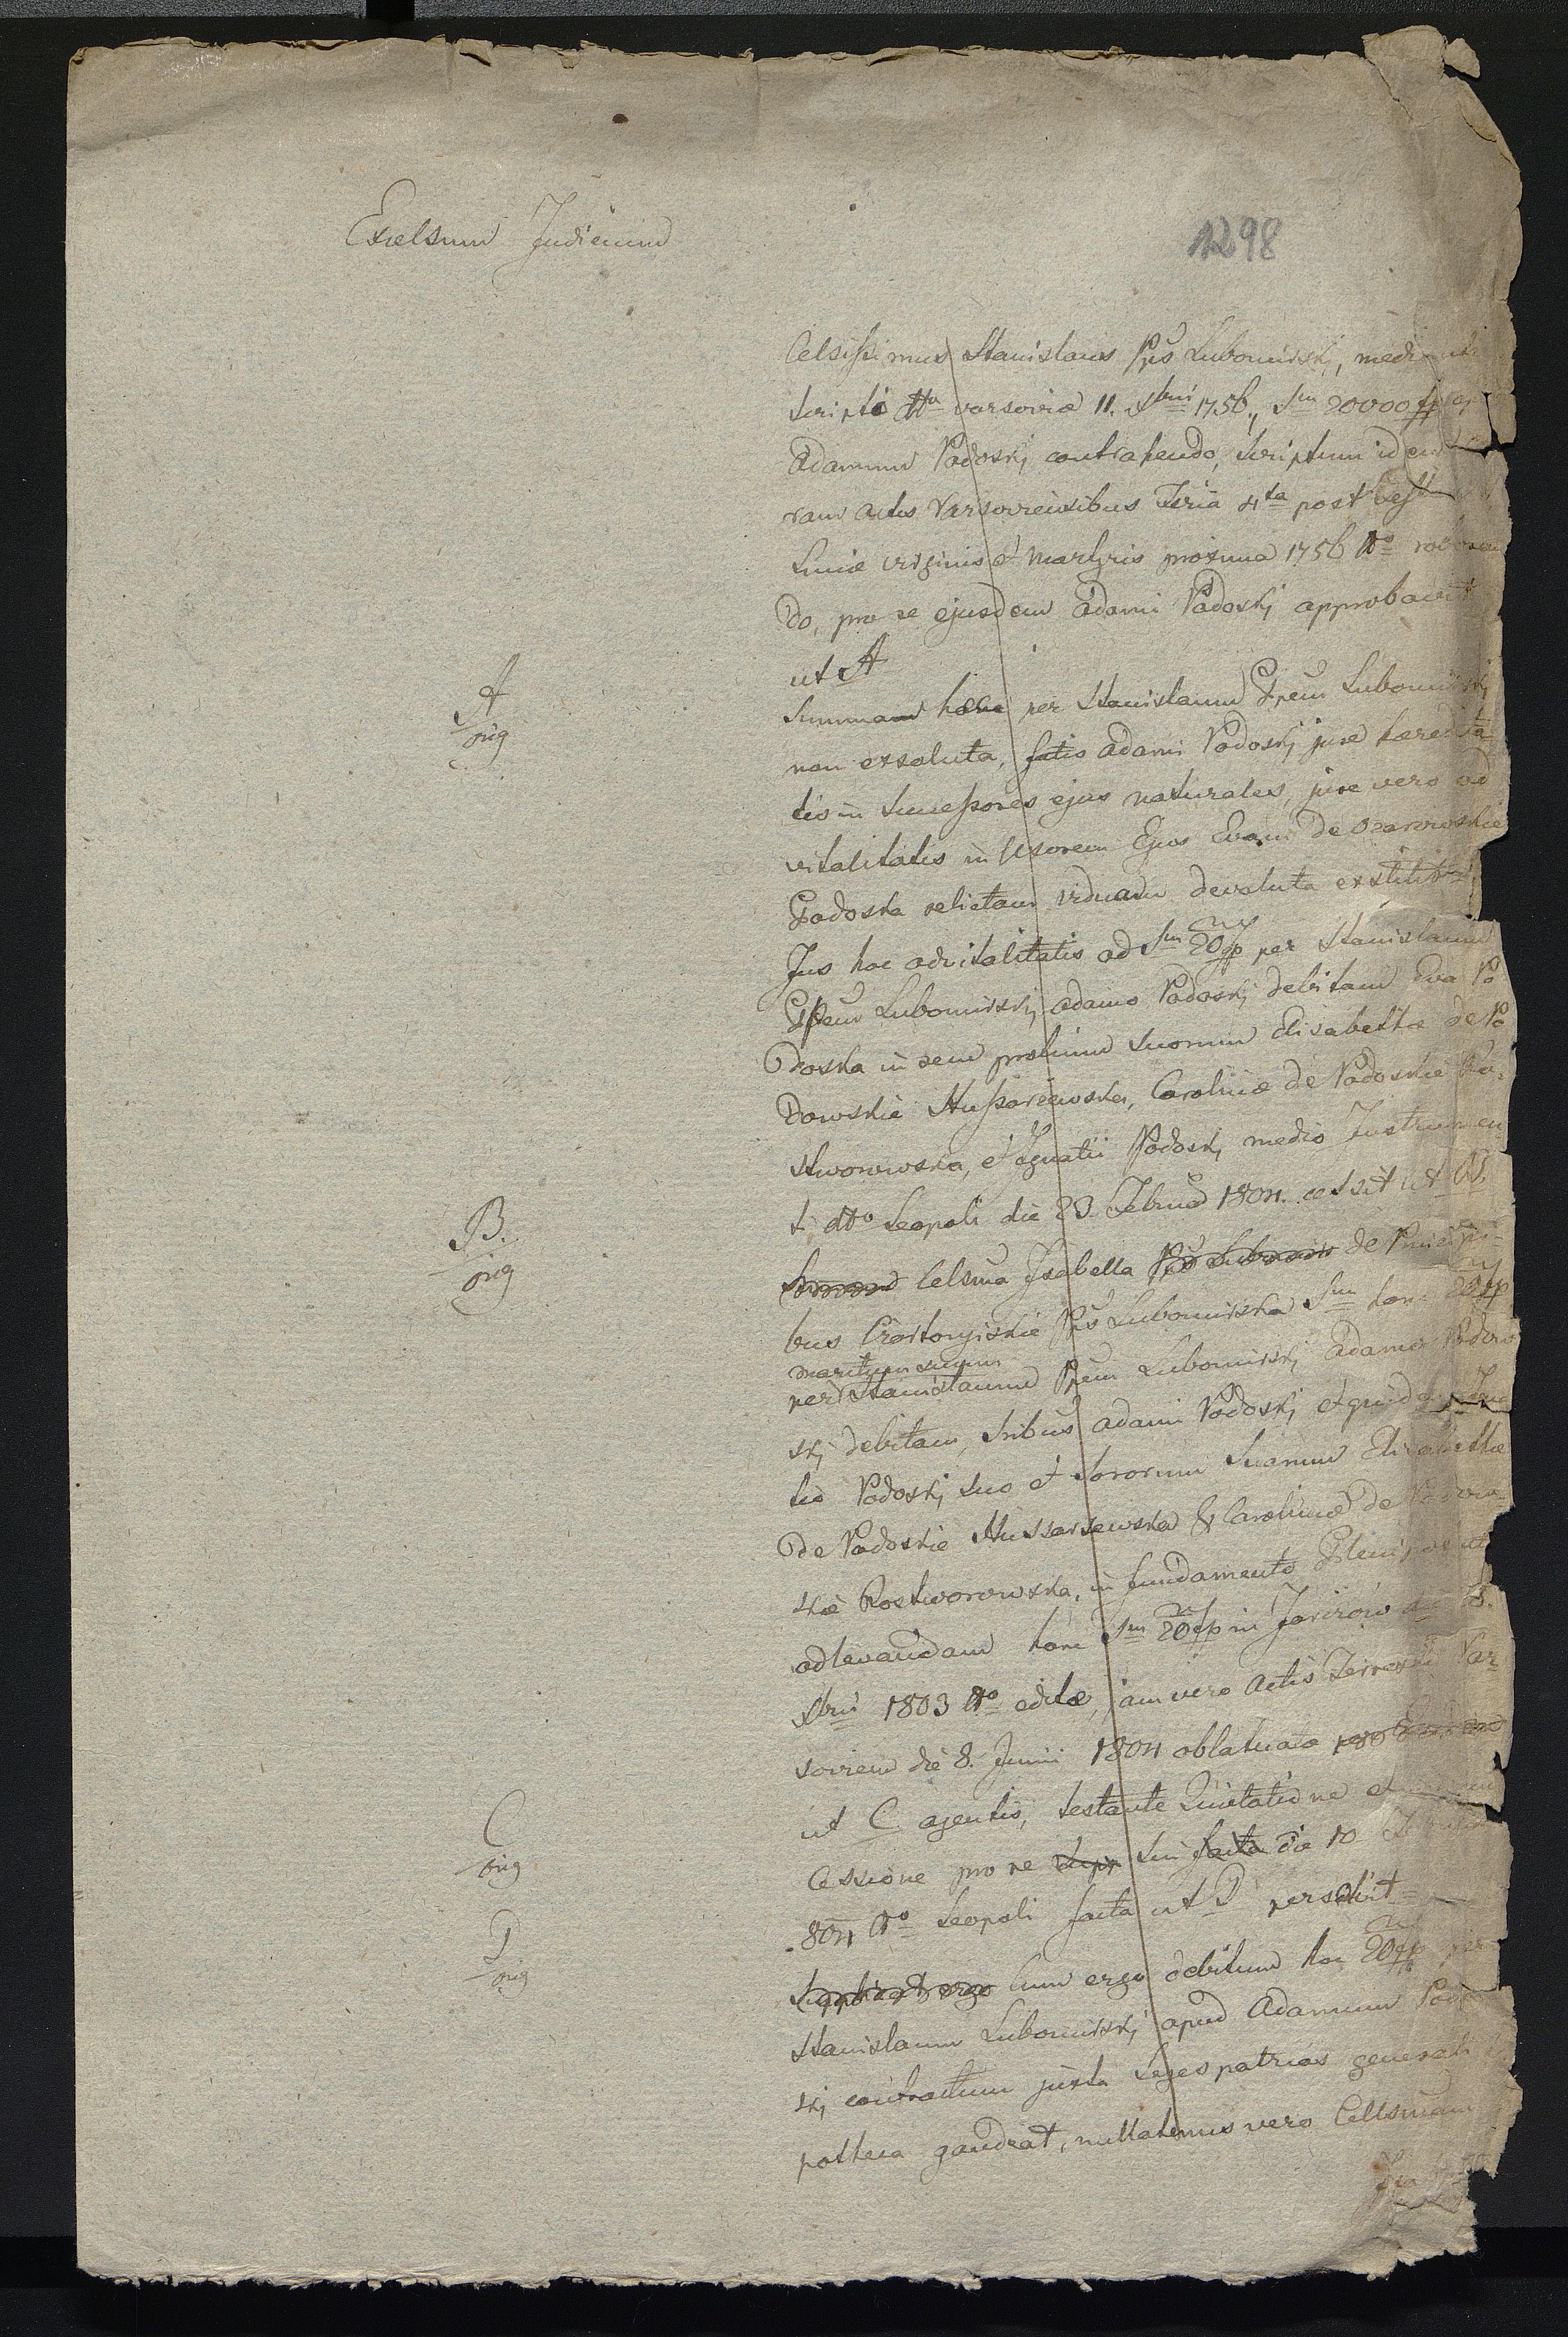 Excelsum Judicium
1298
Celsissimus Stanislaus Pps Lubomirskj, mediante
scripti dtto varsoviæ 11. Xbris 1756., Sm 20000 fp ap
Adamum Podoskj contrahendo, scriptum idem
ram actis Varsoviensibus Feria 4ta post festum
Luciæ virginis et Martyris proxima 1756 Ao roboran
do, pro re ejusdem Adami Podoskj approbavit
ut A
A
orig
Summam hæc per Stanislaum Ppem Lubomirskj
non exsoluta, fatis Adami Podoskj jure hæredita
tis in Successores ejus naturales, jure vero ad
vitalitatis in Uxorem Ejus Evam de Ozarowskie
Podoska relictam viduam devoluta exstitit
Jus hoc advitalitatis ad Sm 20/m fp per Stanislaum
Ppem Lubomirskj Adamo Podoskj debitam Eva Po
doska in rem prolium suorum Elisabethæ de Po
dowskie Hussarzewska, Carolinæ de Podoskie Ro-
stworowska, et Ignatii Podoskj medio Instrumen
ti dtto Leopoli die 23. Februa 1804. cessit ut B.
B.
orig
Celsma Isabella Pps Lubomir de Principi-
bus Czartoryiskie Pps Lubomirska Sm hanc 20/m fp
maritum suum
per Stanislaum Ppem Lubomirskj Adamo Podow
skj debitam, Sribus Adami Podoskj et quidem Igna
tio Podoskj suo et Sororum Suarum Elisabethæ
de Podoskie Hussarzewska & Carolinæ de Podow
skie Rostworowska, in fundamento Plenipotent
ad levandam hanc Sm 20/m fp in Jaryzow die 28.
Xbris 1803 Ao editæ, jam vero Actis Terrestri Var
sovien die 8. Junii 1804 oblatuatæ
ut C agentis, testante Quietatione et
C
orig
Cessione pro re Supr Sui facta die 10
804 Ao Leopoli facta ut D persolvit
D
orig
Supplicat ergo Cum ergo debitum hoc 20/m fp per
Stanislaum Lubomirskj apud Adamum Podo
skj contractum juxta Leges patrias generali
potheca gaudeat, nullatenus vero Celsmam